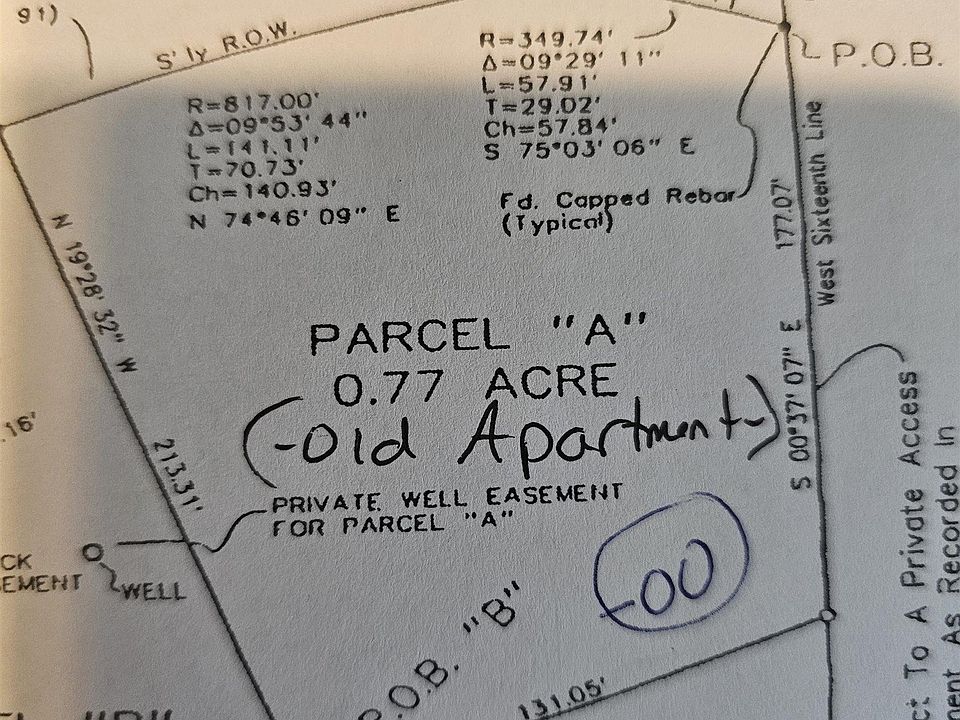 91)
S'ly R.O.W.
R=349.74'
Δ=09°29' 11"
L=57.91'
T=29.02'
Ch=57.84'
S 75°03' 06" E
P.O.B.
R=817.00'
Δ=09°53' 44"
L=141.11'
T=70.73'
Ch=140.93'
N 74°46' 09" E
Fd. Capped Rebar
(Typical)
177.07'
West Sixteenth Line
N 19°28' 32" W
PARCEL "A"
0.77 ACRE
(-Old Apartment-)
S 00°37' 07" E
.16'
213.31'
PRIVATE WELL EASEMENT
FOR PARCEL "A"
CK
EMENT
WELL
-00
P.O.B. "B"
131.05'
ct To A Private Access
ment As Recorded In